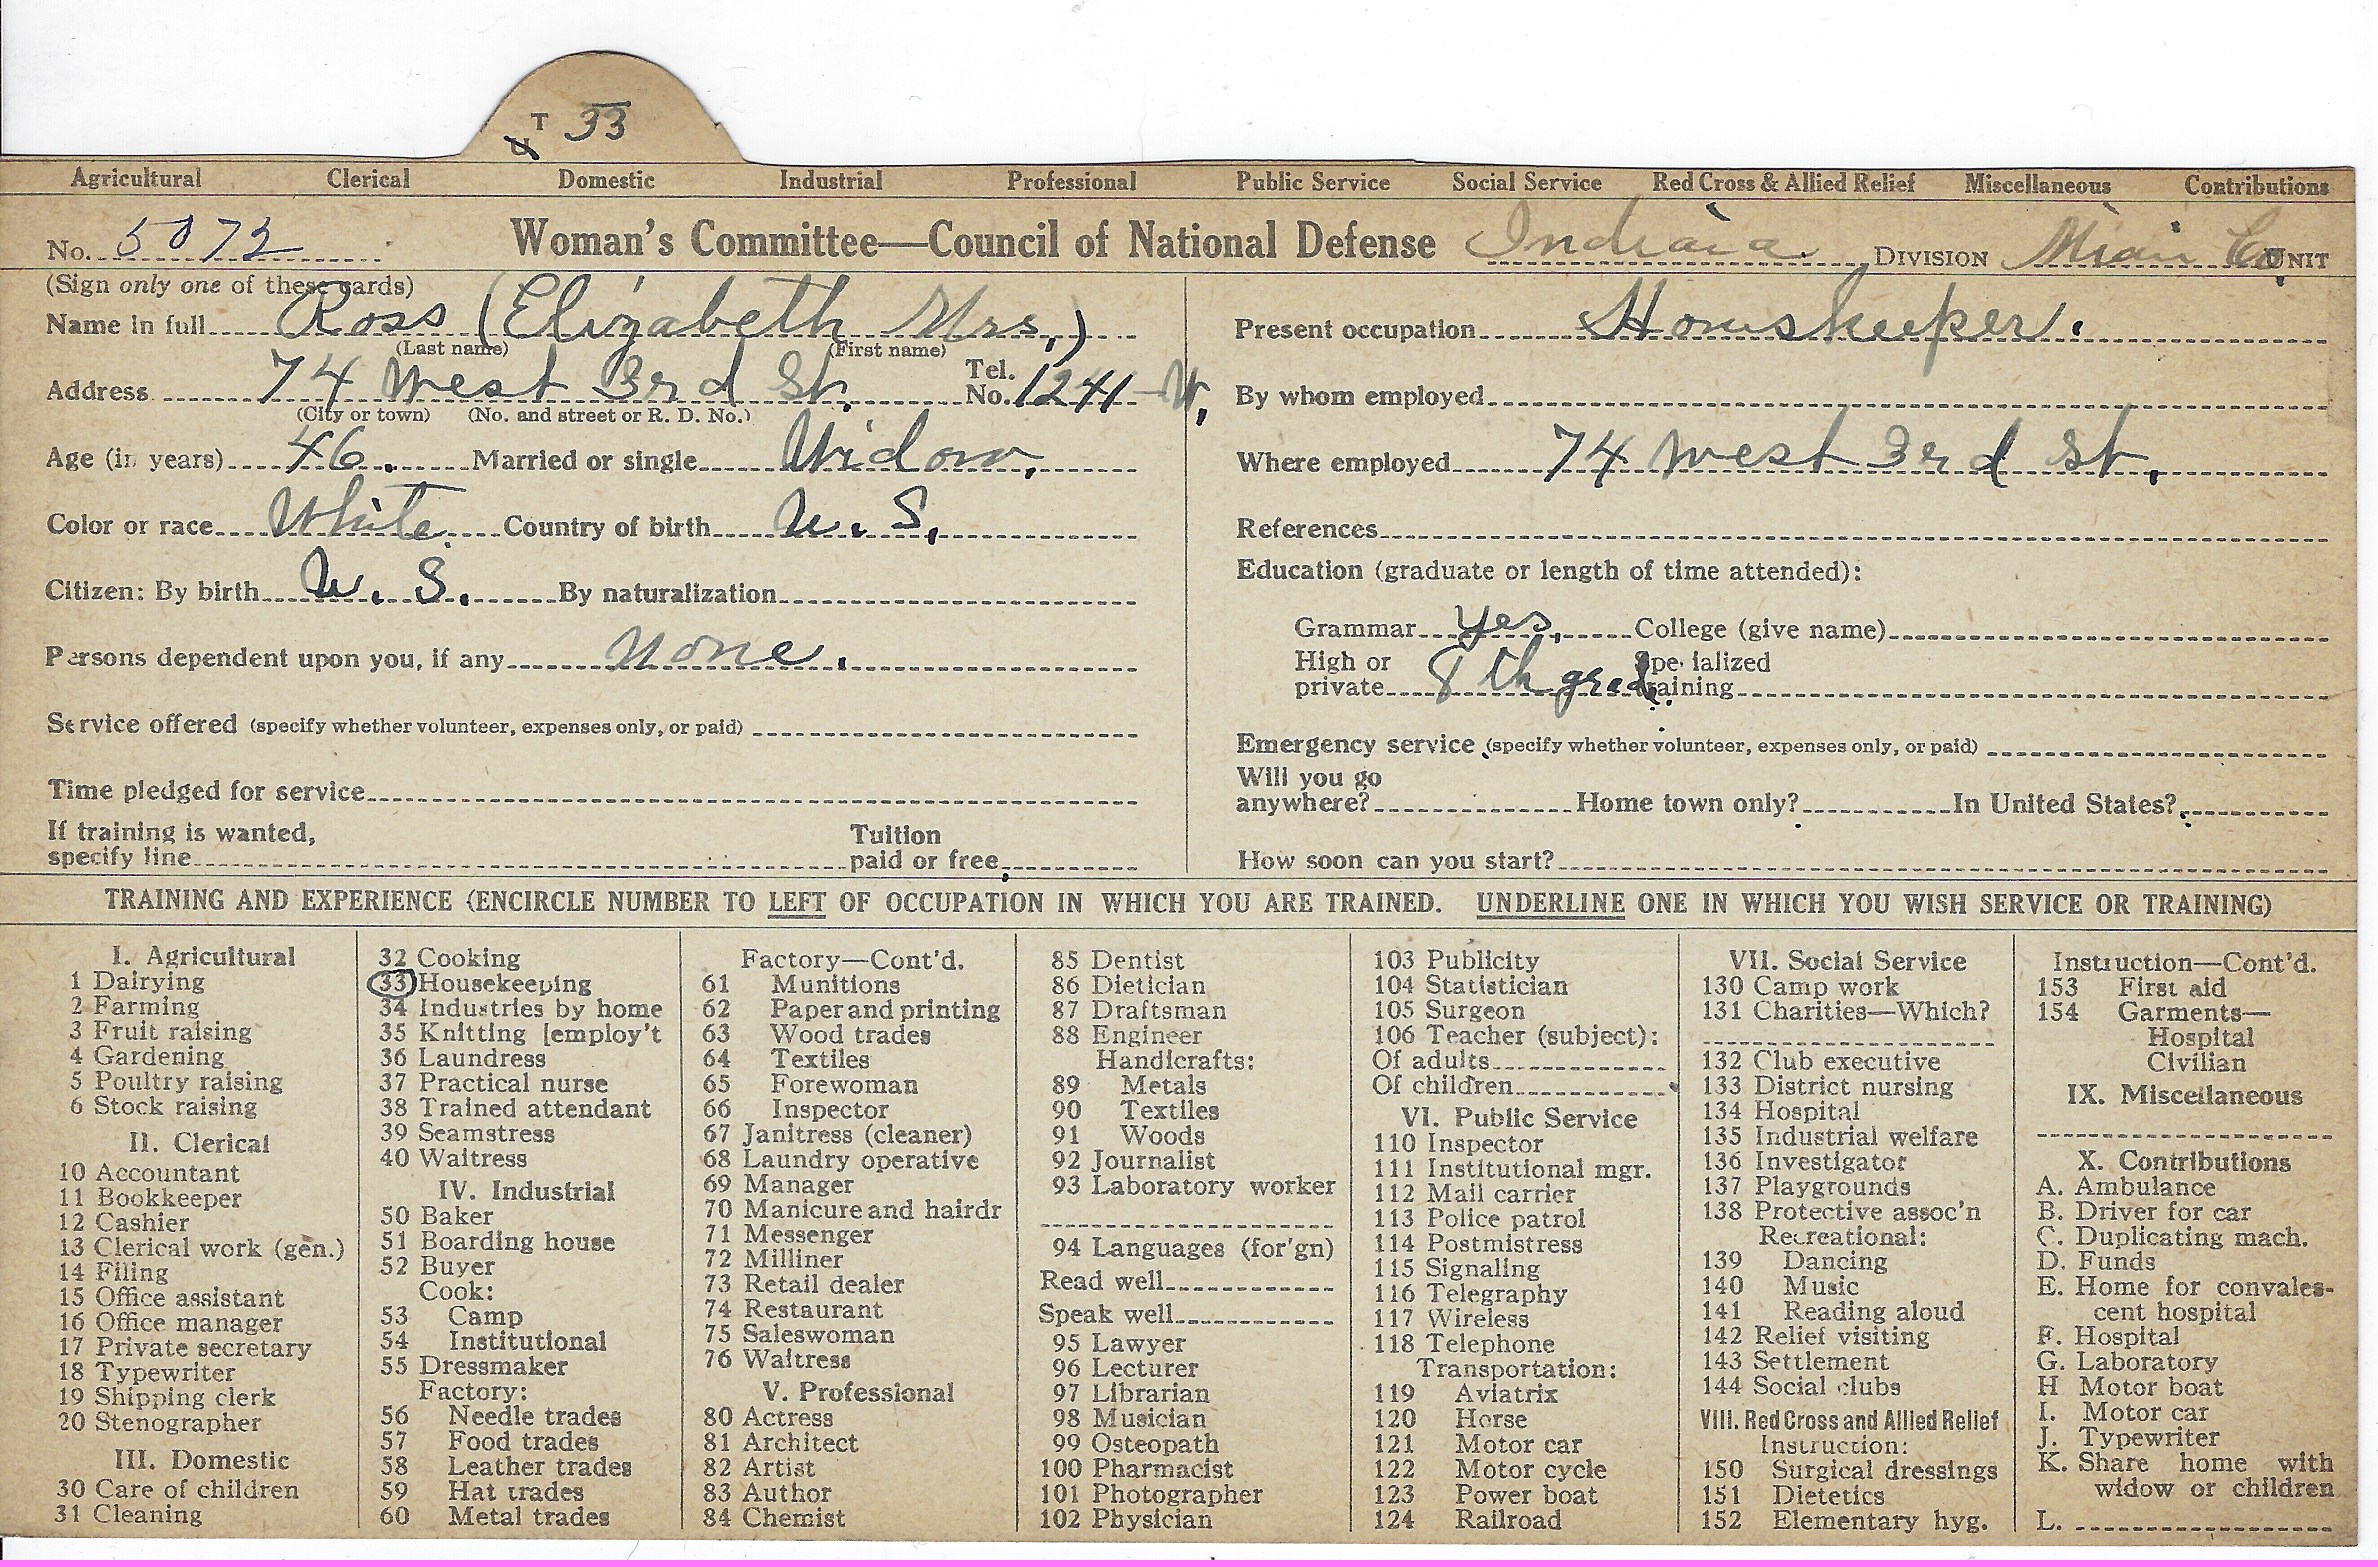 T 33
Agricultural Clerical Domestic Industrial Professional Public Service Social Service Red Cross & Allied Relief Miscellaneous Contributions
No. 5072 Woman's Committee—Council of National Defense Indiana DIVISION Miami Co. UNIT
(Sign only one of these cards)
Name in full Ross (Elizabeth Mrs.)
(Last name) (First name)
Address 74 West 3rd St. Tel. No. 1241-W.
(City or town) (No. and street or R. D. No.)
Age (in years) 46. Married or single Widow.
Color or race White. Country of birth U. S.
Citizen: By birth U. S. By naturalization
Persons dependent upon you, if any None.
Service offered (specify whether volunteer, expenses only, or paid)
Time pledged for service
If training is wanted,
specify line Tuition paid or free
Present occupation Houskeeper.
By whom employed
Where employed 74 West 3rd St.
References
Education (graduate or length of time attended):
Grammar Yes. College (give name)
High or private 8th grad. Specialized training
Emergency service (specify whether volunteer, expenses only, or paid)
Will you go
anywhere? Home town only? In United States?
How soon can you start?
TRAINING AND EXPERIENCE (ENCIRCLE NUMBER TO LEFT OF OCCUPATION IN WHICH YOU ARE TRAINED. UNDERLINE ONE IN WHICH YOU WISH SERVICE OR TRAINING)
I. Agricultural
1 Dairying
2 Farming
3 Fruit raising
4 Gardening
5 Poultry raising
6 Stock raising
II. Clerical
10 Accountant
11 Bookkeeper
12 Cashier
13 Clerical work (gen.)
14 Filing
15 Office assistant
16 Office manager
17 Private secretary
18 Typewriter
19 Shipping clerk
20 Stenographer
III. Domestic
30 Care of children
31 Cleaning
32 Cooking
33 Housekeeping
34 Industries by home
35 Knitting [employ't
36 Laundress
37 Practical nurse
38 Trained attendant
39 Seamstress
40 Waitress
IV. Industrial
50 Baker
51 Boarding house
52 Buyer
Cook:
53 Camp
54 Institutional
55 Dressmaker
Factory:
56 Needle trades
57 Food trades
58 Leather trades
59 Hat trades
60 Metal trades
Factory—Cont'd.
61 Munitions
62 Paper and printing
63 Wood trades
64 Textiles
65 Forewoman
66 Inspector
67 Janitress (cleaner)
68 Laundry operative
69 Manager
70 Manicure and hairdr
71 Messenger
72 Milliner
73 Retail dealer
74 Restaurant
75 Saleswoman
76 Waitress
V. Professional
80 Actress
81 Architect
82 Artist
83 Author
84 Chemist
85 Dentist
86 Dietician
87 Draftsman
88 Engineer
Handicrafts:
89 Metals
90 Textiles
91 Woods
92 Journalist
93 Laboratory worker
94 Languages (for'gn)
Read well
Speak well
95 Lawyer
96 Lecturer
97 Librarian
98 Musician
99 Osteopath
100 Pharmacist
101 Photographer
102 Physician
103 Publicity
104 Statistician
105 Surgeon
106 Teacher (subject):
Of adults
Of children
VI. Public Service
110 Inspector
111 Institutional mgr.
112 Mail carrier
113 Police patrol
114 Postmistress
115 Signaling
116 Telegraphy
117 Wireless
118 Telephone
Transportation:
119 Aviatrix
120 Horse
121 Motor car
122 Motor cycle
123 Power boat
124 Railroad
VII. Social Service
130 Camp work
131 Charities—Which?
132 Club executive
133 District nursing
134 Hospital
135 Industrial welfare
136 Investigator
137 Playgrounds
138 Protective assoc'n
Recreational:
139 Dancing
140 Music
141 Reading aloud
142 Relief visiting
143 Settlement
144 Social clubs
VIII. Red Cross and Allied Relief
Instruction:
150 Surgical dressings
151 Dietetics
152 Elementary hyg.
Instruction—Cont'd.
153 First aid
154 Garments—
Hospital
Civilian
IX. Miscellaneous
X. Contributions
A. Ambulance
B. Driver for car
C. Duplicating mach.
D. Funds
E. Home for convales-
cent hospital
F. Hospital
G. Laboratory
H Motor boat
I. Motor car
J. Typewriter
K. Share home with
widow or children
L.